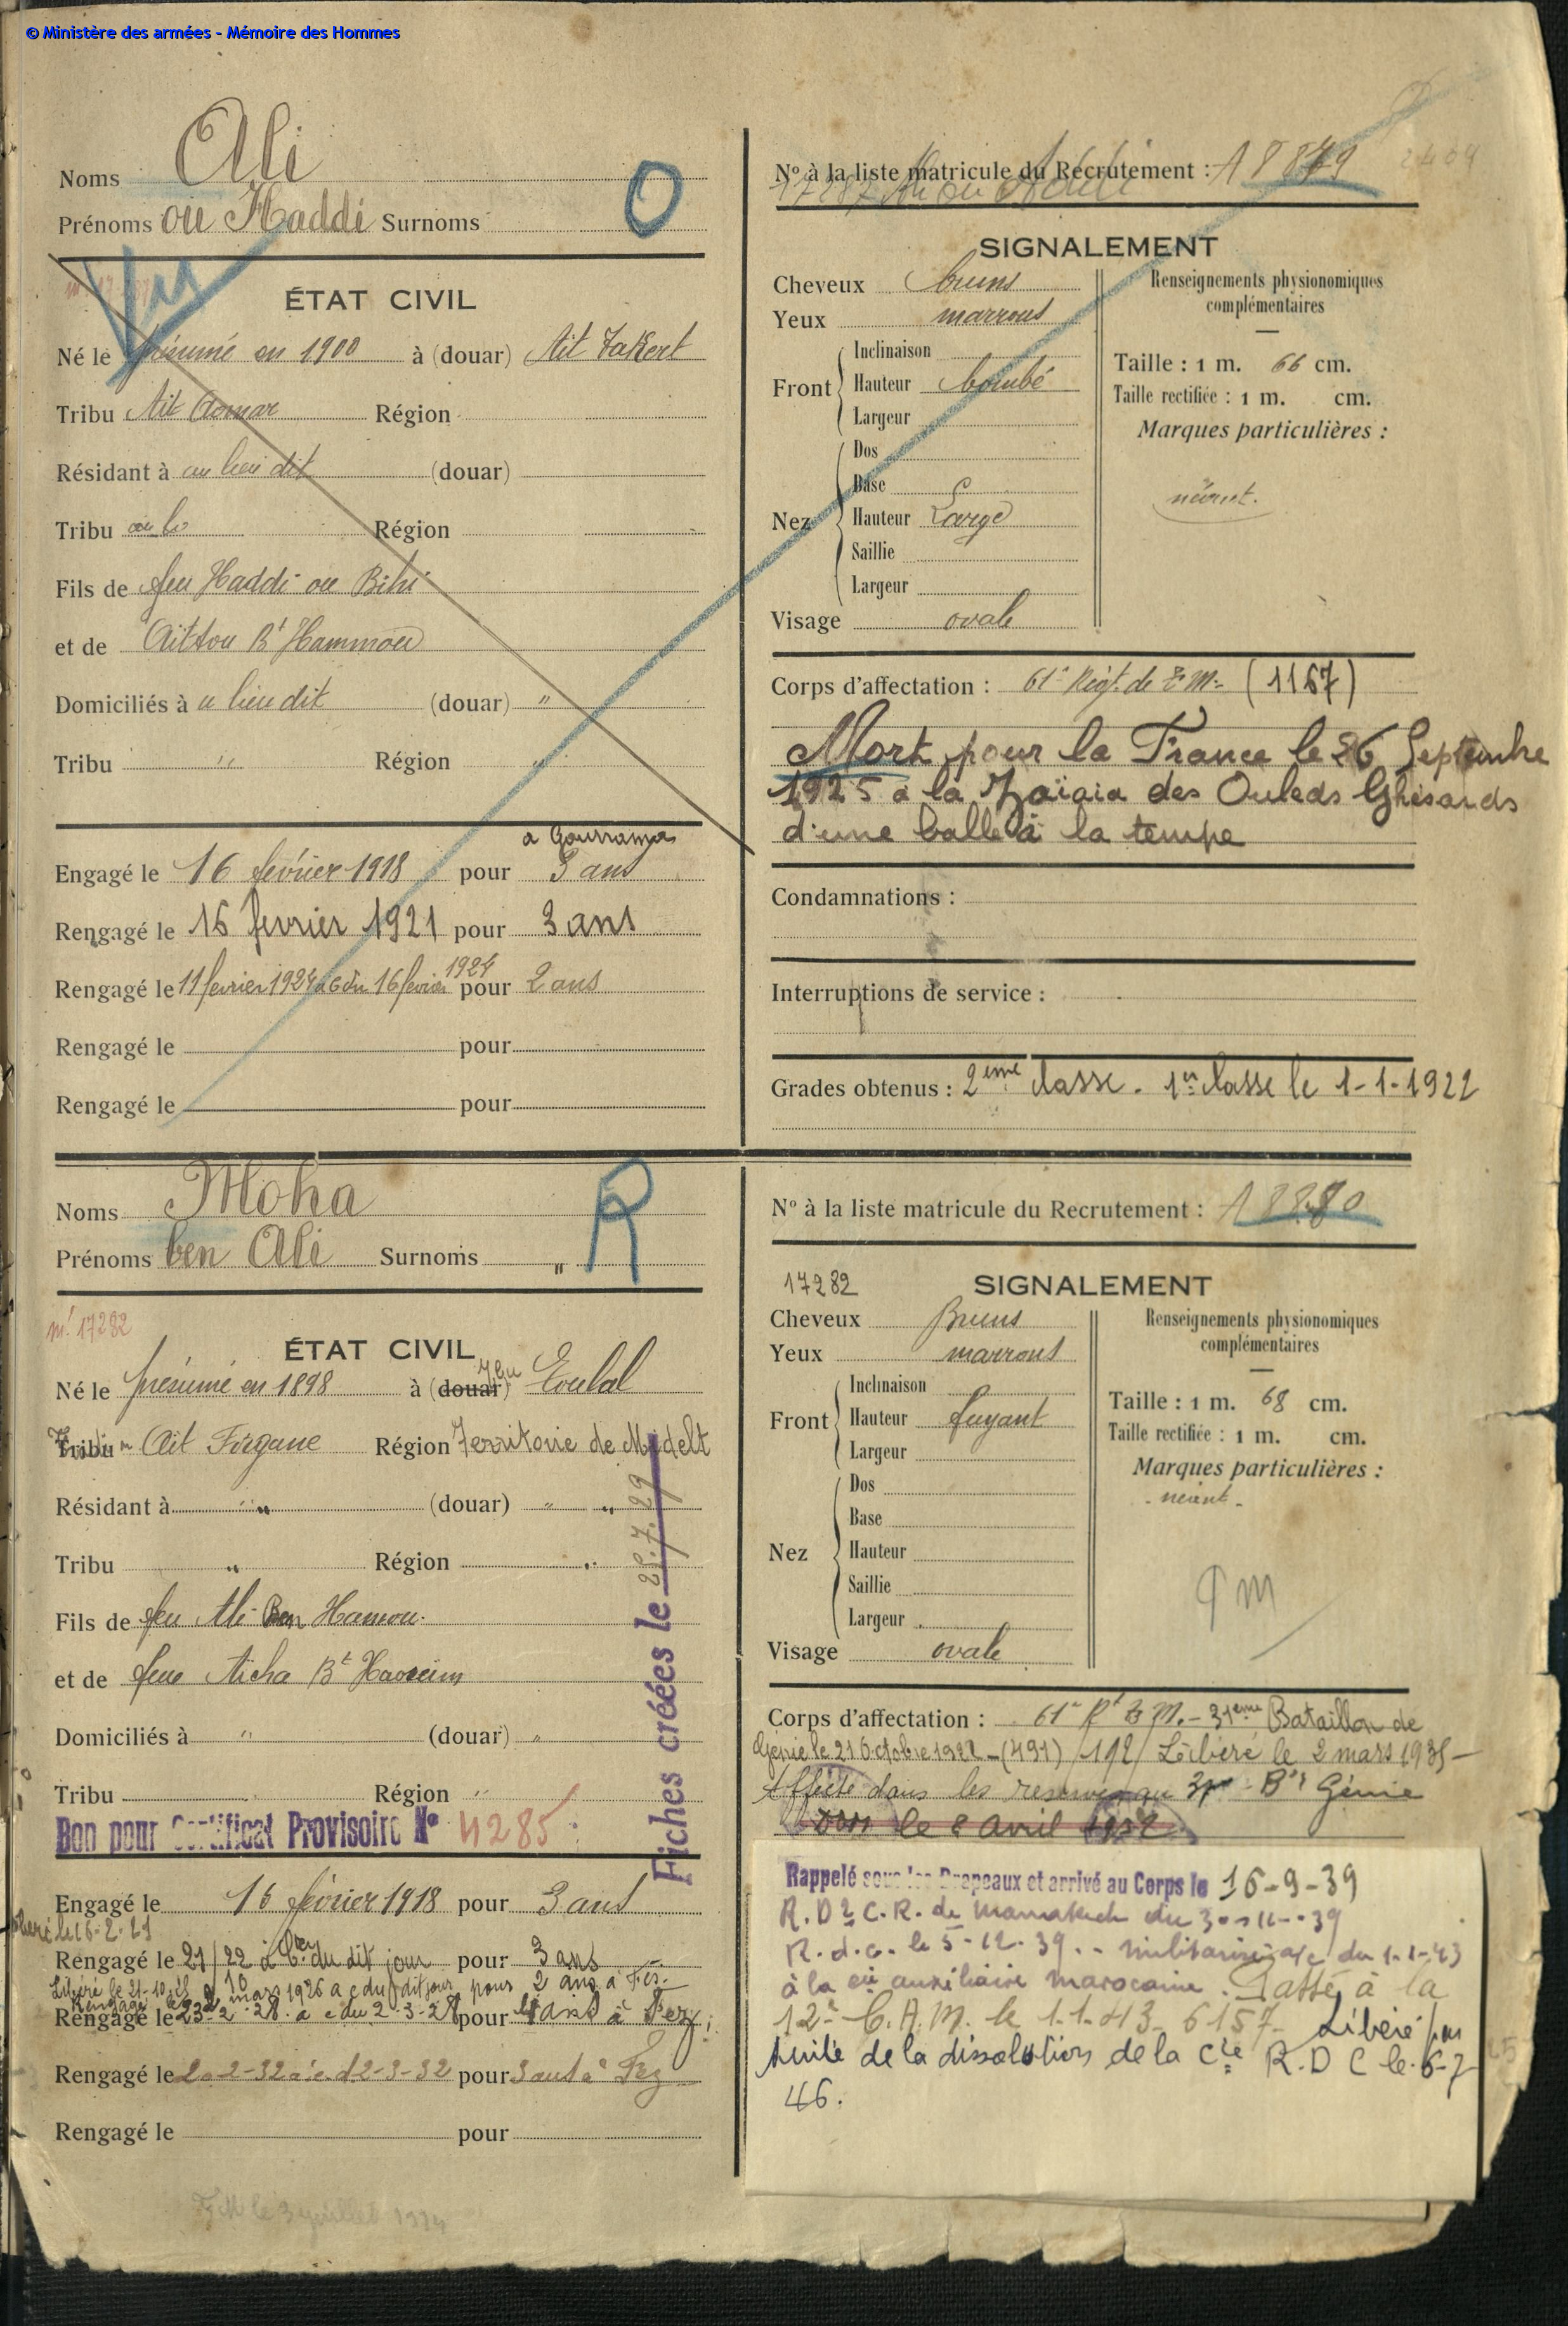 © Ministère des armées - Mémoire des Hommes
Noms Ali
Prénoms ou Haddi Surnoms
O
ÉTAT CIVIL
Né le présumé en 1900 à (douar) Ait Takert
Tribu Ait Aomar Région
Résidant à au lieu dit (douar)
Tribu Région
Fils de feu Haddi ou Bihi
et de Aittou Bt Hammou
Domiciliés à au lieu dit (douar) "
Tribu " Région "
à Gourrama
Engagé le 16 février 1918 pour 3 ans
Rengagé le 16 fevrier 1921 pour 3 ans
Rengagé le 11 fevrier 1924 à c du 16 fevrier 1924 pour 2 ans
Rengagé le pour
Rengagé le pour
N° à la liste matricule du Recrutement : 18879
2404
SIGNALEMENT
Cheveux bruns
Yeux marrons
Front
Inclinaison
Hauteur bombé
Largeur
Nez
Dos
Base
Hauteur Large
Saillie
Largeur
Visage ovale
Renseignements physionomiques
complémentaires
Taille : 1 m. 66 cm.
Taille rectifiée : 1 m. cm.
Marques particulières :
néant.
Corps d'affectation : 61e Régt. de T. M. (1167)
Mort pour la France le 26 Septembre
1925 à la Zaïaia des Ouleds Ghesards
d'une balle à la tempe
Condamnations :
Interruptions de service :
Grades obtenus : 2ème classe - 1er classe le 1-1-1922
Noms Moha
Prénoms ben Ali Surnoms "
R
mle 17282
ÉTAT CIVIL
Né le présumé en 1898 à (douar) Eoulal
Tribu Ait Firgane Région Territoire de Midelt
Résidant à " (douar) " "
Tribu " Région "
Fils de feu Ali Ben Hamou.
et de feue Aicha Bt Haoscim
Domiciliés à " (douar) "
Tribu Région "
Bon pour Certificat Provisoire N° 4285
Fiches créées le 25.7.29
Engagé le 16 février 1918 pour 3 ans
Libéré le 16-2-21
Rengagé le 21/22 à Cter du dit jour pour 3 ans
Libéré le 21-10-25 Rengagé le 10 mars 1926 à c du dit jour pour 2 ans à Fès.
Rengagé le 23-2-28 à c du 2-3-28 pour 4 ans à Fez
Rengagé le 2-2-32 à c d 2-3-32 pour 3 ans à Fez
Rengagé le pour
FM le 3 juillet 1934
N° à la liste matricule du Recrutement : 18880
17282
SIGNALEMENT
Cheveux Bruns
Yeux marrons
Front
Inclinaison
Hauteur fuyant
Largeur
Nez
Dos
Base
Hauteur
Saillie
Largeur
Visage ovale
Renseignements physionomiques
complémentaires
Taille : 1 m. 68 cm.
Taille rectifiée : 1 m. cm.
Marques particulières :
- néant -
Corps d'affectation : 61e Rt T M. - 31eme Bataillon de
Génie le 21 Octobre 1922 - (491) /192/ Libéré le 2 mars 1935 -
Affecté dans les reserves au 31e Bon Génie
le 8 avril
Rappelé sous les Drapeaux et arrivé au Corps le 16-9-39
R.D2 C.R. de Marrakech du 30-11-39
R.d.c. le 5-12-39. - militarisé a/c du 1-1-43
à la cie auxiliaire marocaine. Passé à la
12e C.A.M. le 1.1.43 6157 Libéré par
suite de la dissolution de la Cie R.D C le 6-7
46.